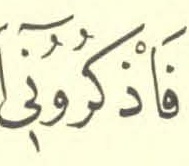 فَاذْكُرُونِيٓ